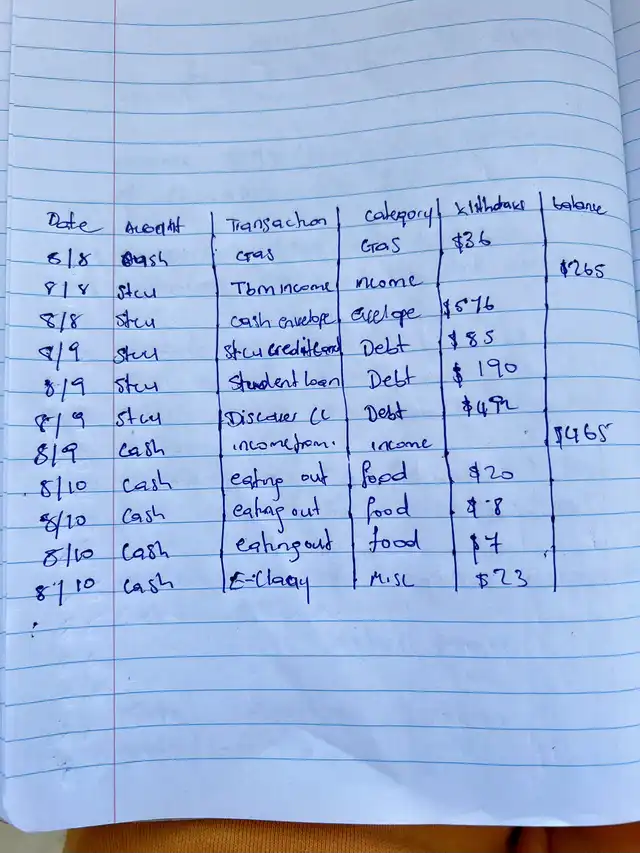 Date Account Transaction category Withdraws balance
8/8 cash Gas Gas $36
8/8 Stcu Tbm income income $265
8/8 Stcu cash envelope envelope $576
8/9 Stcu Stcu credit card Debt $85
8/9 Stcu Student loan Debt $190
8/9 Stcu Discover CC Debt $492
8/9 Cash income from. income $465
8/10 Cash eating out food $20
8/10 Cash eating out food $8
8/10 Cash eating out food $7
8/10 Cash Misc $23